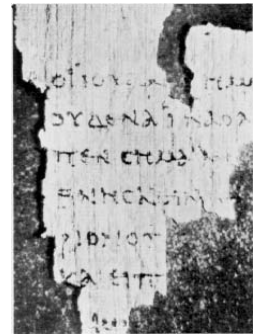 ΟΙ ΙΟΥΔΑΙ ΗΜΕ
ΟΥΔΕΝΑ ΙΝΑ Ο Λ
ΠΕΝ CΗΜΑΙΝω
ΘΝΗCΚΕΙΝ
ΡΙΟΝ Ο Π
ΚΑΙ ΕΙΠ